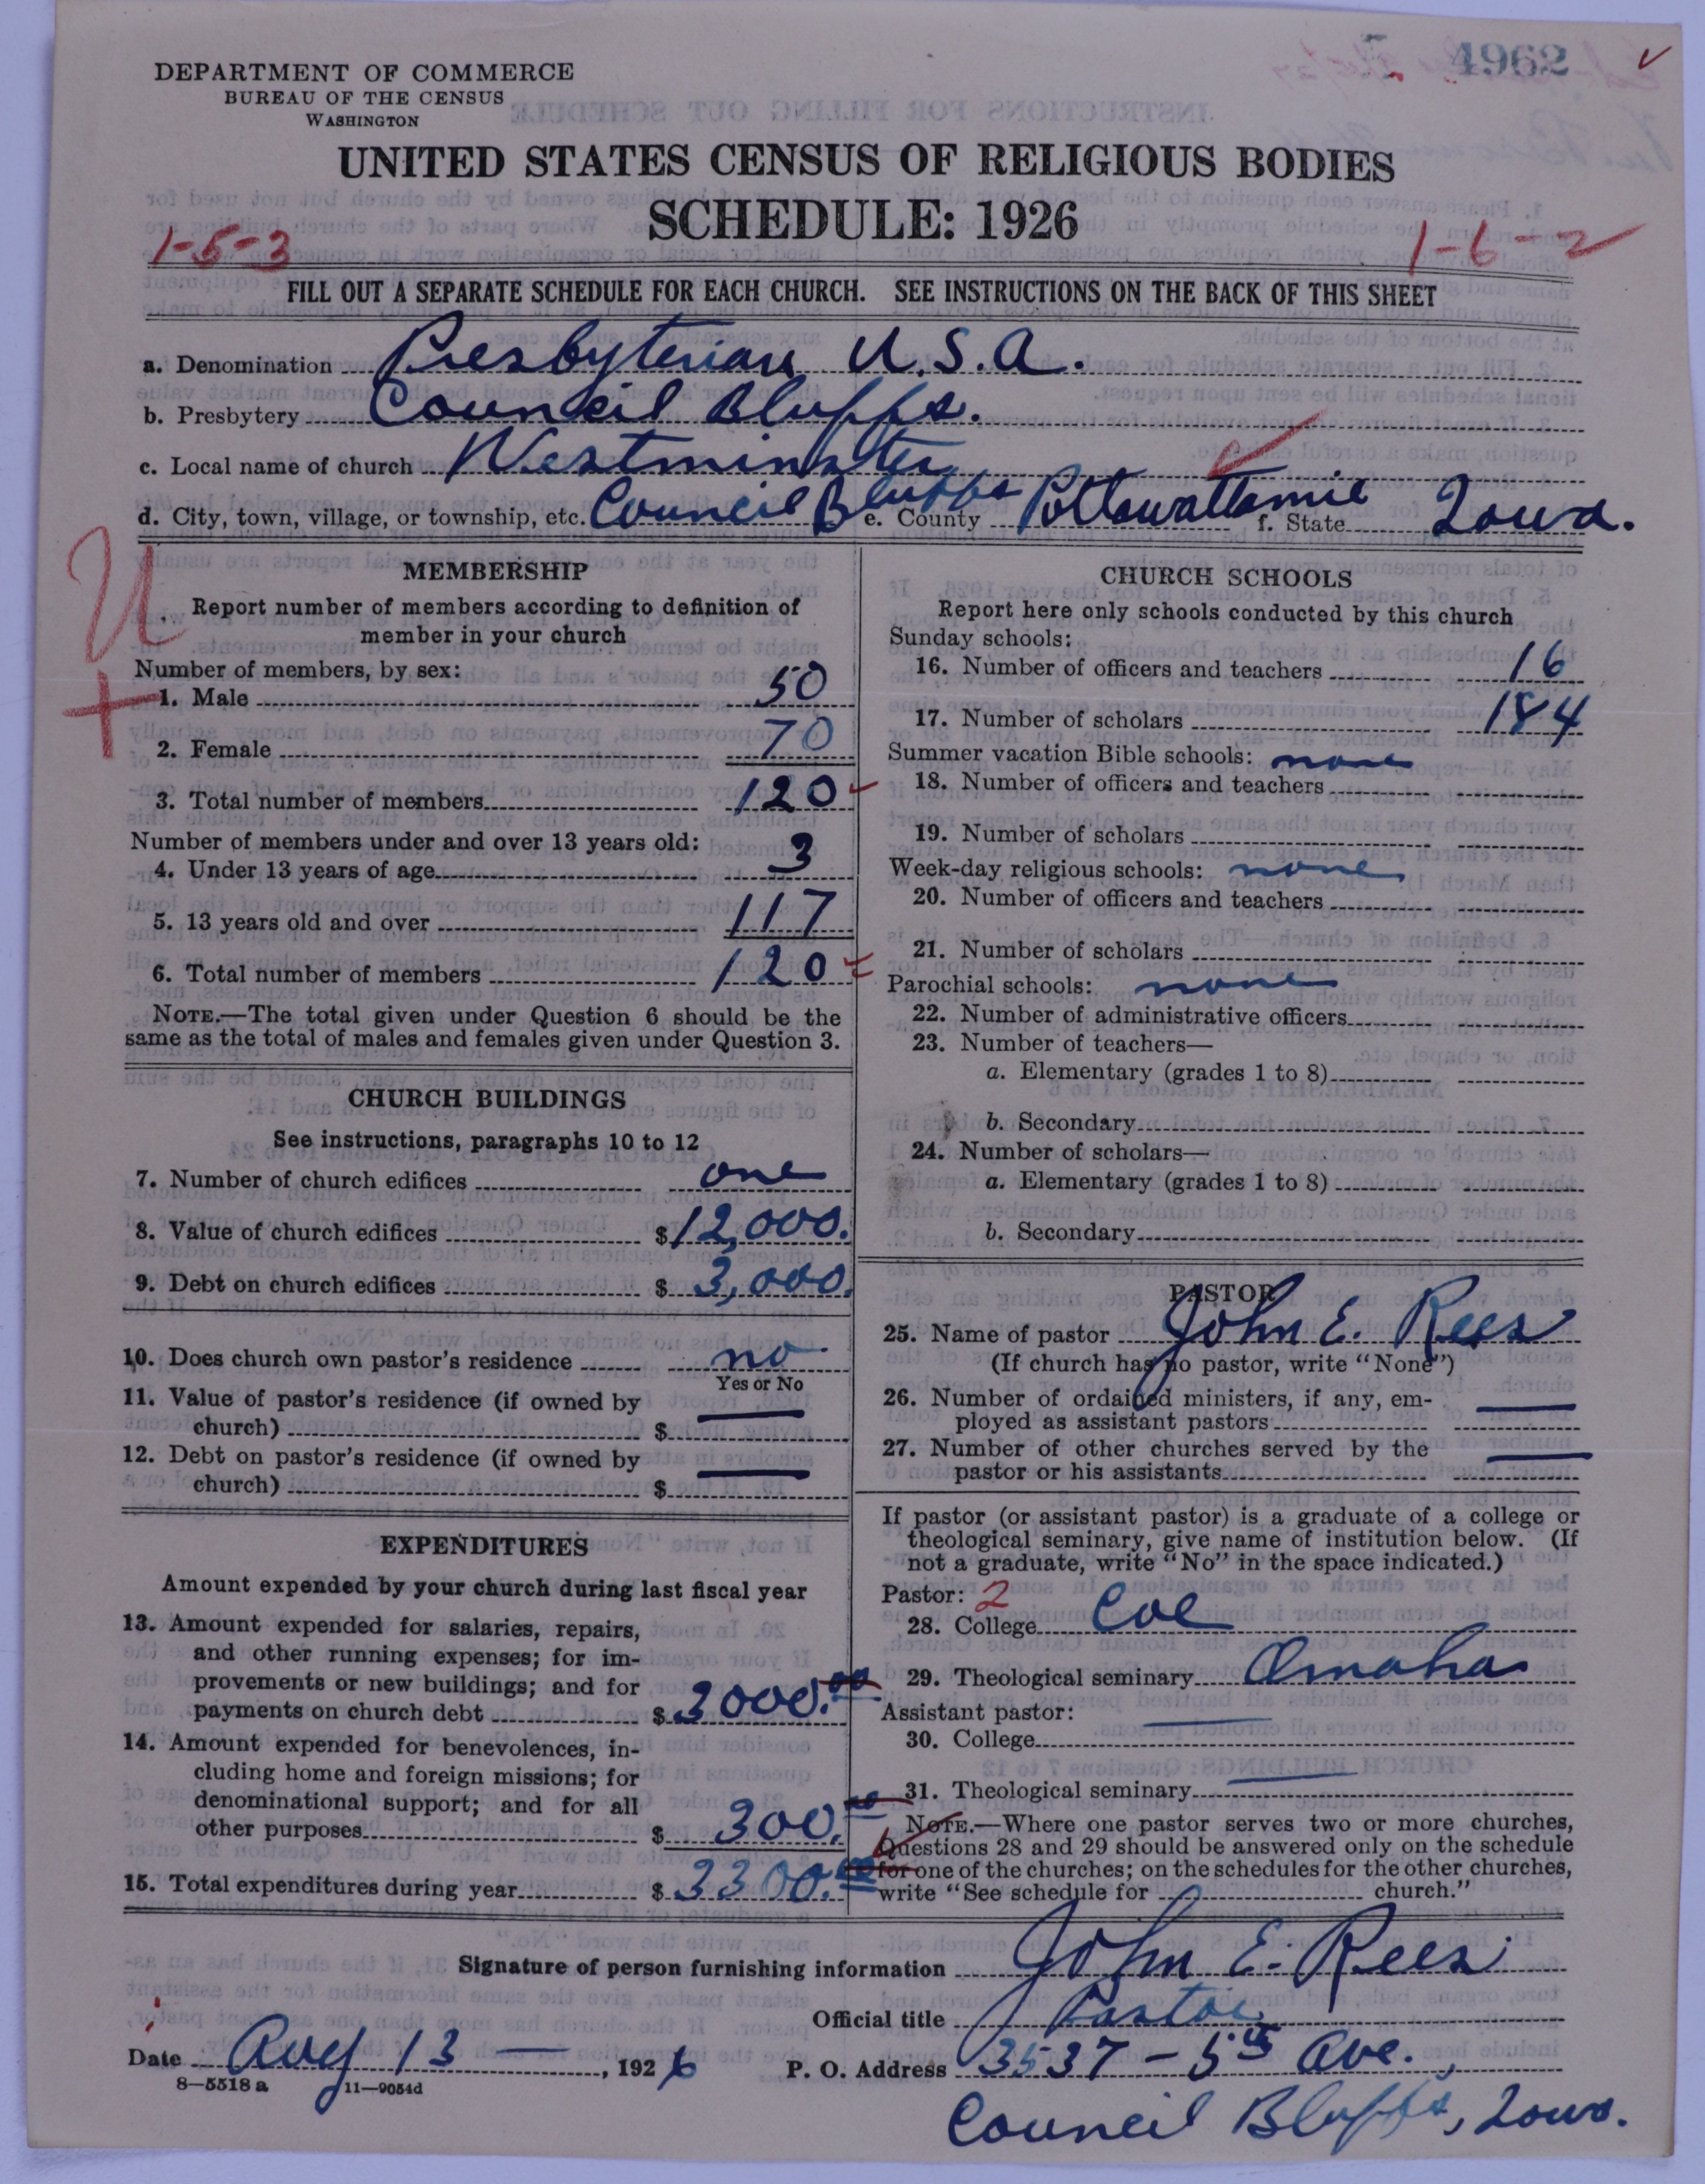 4962
DEPARTMENT OF COMMERCE
BUREAU OF THE CENSUS
WASHINGTON
UNITED STATES CENSUS OF RELIGIOUS BODIES
SCHEDULE: 1926
1-5-3
1-6-2
FILL OUT A SEPARATE SCHEDULE FOR EACH CHURCH. SEE INSTRUCTIONS ON THE BACK OF THIS SHEET
a. Denomination Presbyterian U.S.A.
b. Presbytery Council Bluffs.
c. Local name of church Westminster
d. City, town, village, or township, etc. Council Bluffs e. County Pottawattamie f. State Iowa.
U
+
MEMBERSHIP
Report number of members according to definition of
member in your church
Number of members, by sex:
1. Male 50
2. Female 70
3. Total number of members 120
Number of members under and over 13 years old:
4. Under 13 years of age 3
5. 13 years old and over 117
6. Total number of members 120
NOTE.—The total given under Question 6 should be the
same as the total of males and females given under Question 3.
CHURCH BUILDINGS
See instructions, paragraphs 10 to 12
7. Number of church edifices one
8. Value of church edifices $12,000.
9. Debt on church edifices $3,000.
10. Does church own pastor's residence no
Yes or No
11. Value of pastor's residence (if owned by
church) $ —
12. Debt on pastor's residence (if owned by
church) $ —
EXPENDITURES
Amount expended by your church during last fiscal year
13. Amount expended for salaries, repairs,
and other running expenses; for im-
provements or new buildings; and for
payments on church debt $3000.00
14. Amount expended for benevolences, in-
cluding home and foreign missions; for
denominational support; and for all
other purposes $300.00
15. Total expenditures during year $3300.00
CHURCH SCHOOLS
Report here only schools conducted by this church
Sunday schools:
16. Number of officers and teachers 16
17. Number of scholars 184
Summer vacation Bible schools: none
18. Number of officers and teachers
19. Number of scholars
Week-day religious schools: none
20. Number of officers and teachers
21. Number of scholars
Parochial schools: none
22. Number of administrative officers
23. Number of teachers—
a. Elementary (grades 1 to 8)
b. Secondary
24. Number of scholars—
a. Elementary (grades 1 to 8)
b. Secondary
PASTOR
25. Name of pastor John E. Rees
(If church has no pastor, write "None")
26. Number of ordained ministers, if any, em-
ployed as assistant pastors —
27. Number of other churches served by the
pastor or his assistants —
If pastor (or assistant pastor) is a graduate of a college or
theological seminary, give name of institution below. (If
not a graduate, write "No" in the space indicated.)
Pastor: 2
28. College Coe
29. Theological seminary Omaha
Assistant pastor: —
30. College
31. Theological seminary —
NOTE.—Where one pastor serves two or more churches,
Questions 28 and 29 should be answered only on the schedule
for one of the churches; on the schedules for the other churches,
write "See schedule for church."
Signature of person furnishing information John E. Rees
Official title Pastor
Date Aug 13 —, 1926 P. O. Address 3537 - 5th Ave.
8—5518a 11—9054d
Council Bluffs, Iowa.